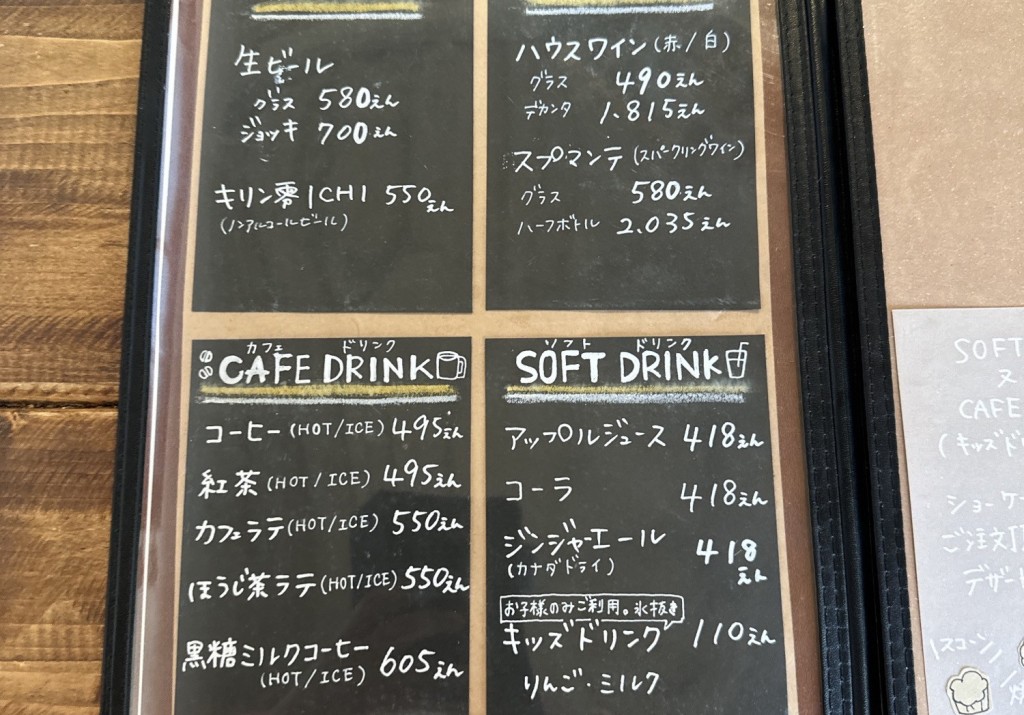 生ビール
グラス 580えん
ジョッキ 700えん
キリン零ICHI 550えん
(ノンアルコールビール)
ハウスワイン(赤/白)
グラス 490えん
デカンタ 1.815えん
スプマンテ(スパークリングワイン)
グラス 580えん
ハーフボトル 2.035えん
カフェ ドリンク
CAFE DRINK
コーヒー(HOT/ICE) 495えん
紅茶(HOT/ICE) 495えん
カフェラテ(HOT/ICE) 550えん
ほうじ茶ラテ(HOT/ICE) 550えん
黒糖ミルクコーヒー
(HOT/ICE) 605えん
ソフト ドリンク
SOFT DRINK
アップルジュース 418えん
コーラ 418えん
ジンジャーエール 418
(カナダドライ) えん
お子様のみご利用。氷抜き
キッズドリンク 110えん
りんご・ミルク
SOFT
又
CAFE
(キッズド
ショーケー
ご注文
デザー
スコーン